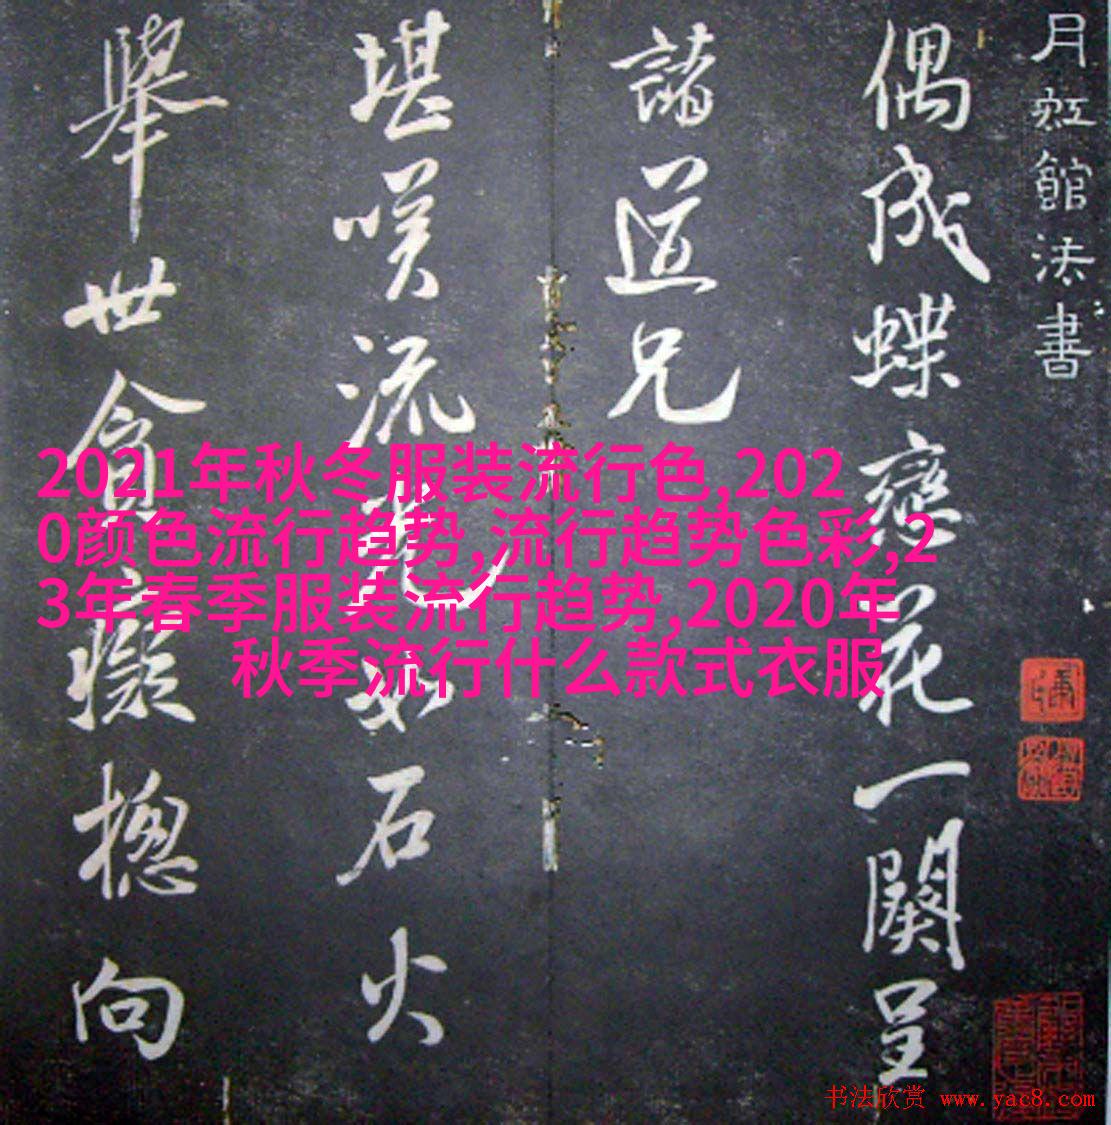 月虹館法書
偶成蝶戀花一闋呈
諸道兄
堪咲流光如石火
舉世貪癡揔向
2021年秋冬服装流行色,202
0颜色流行趋势,流行趋势色彩,2
3年春季服装流行趋势,2020年
秋季流行什么款式衣服
书法欣赏 www.yac8.com